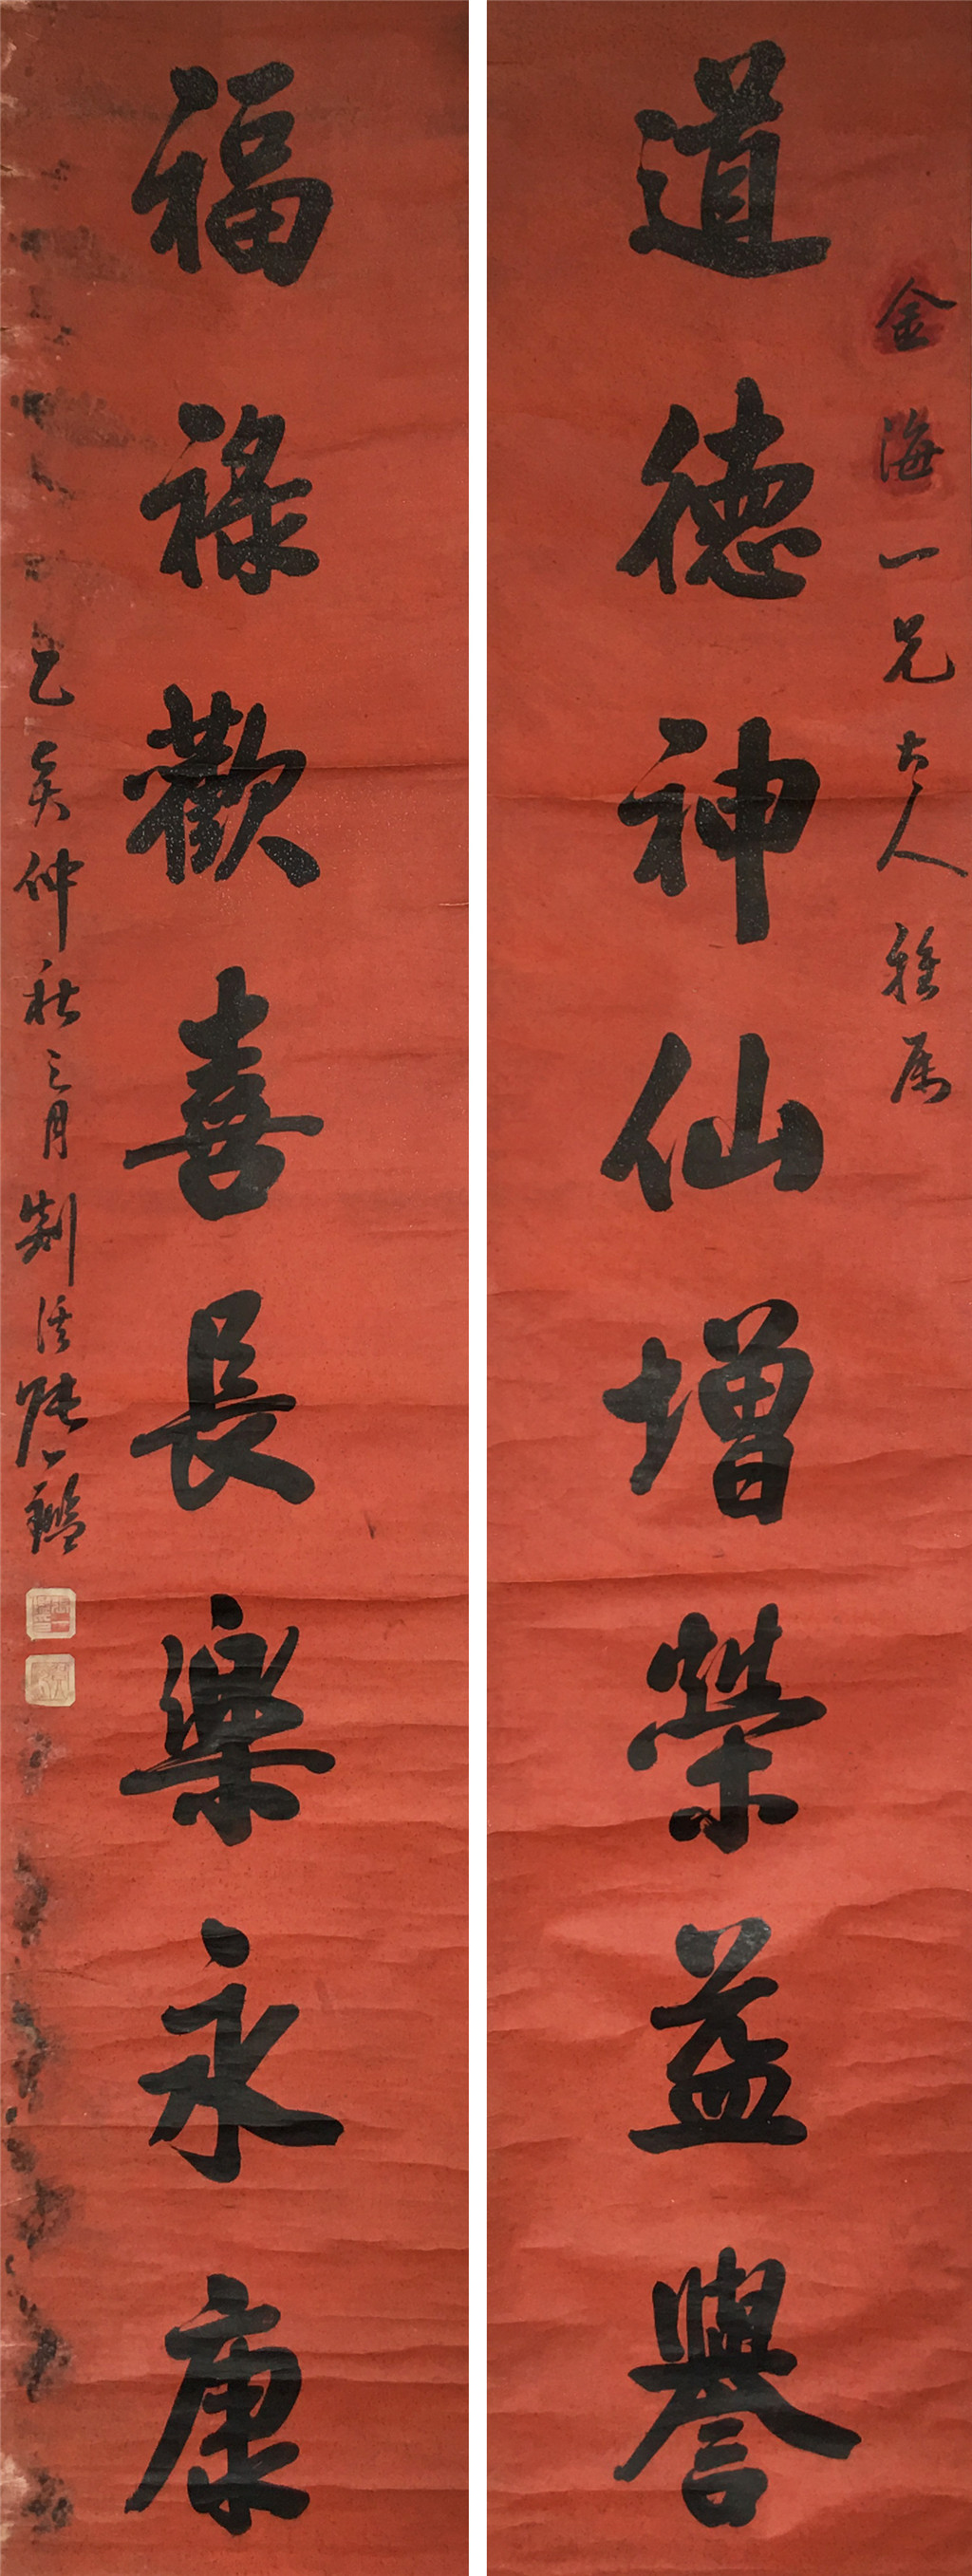 金海一兄大人雅属
道德神仙增榮益譽
福祿歡喜長樂永康
乙亥仲秋之月剡溪張鑑